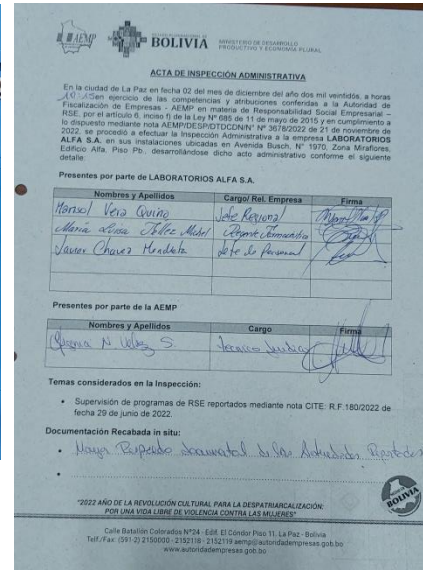 AEMP
BOLIVIA
MINISTERIO DE DESARROLLO
PRODUCTIVO Y ECONOMÍA PLURAL
ACTA DE INSPECCIÓN ADMINISTRATIVA
En la ciudad de La Paz en fecha 02 del mes de diciembre del año dos mil veintidós, a horas
10:15 en ejercicio de las competencias y atribuciones conferidas a la Autoridad de
Fiscalización de Empresas - AEMP en materia de Responsabilidad Social Empresarial –
RSE, por el artículo 6, inciso f) de la Ley N° 685 de 11 de mayo de 2015 y en cumplimiento a
lo dispuesto mediante nota AEMP/DESP/DTDCDN/N° N° 3678/2022 de 21 de noviembre de
2022, se procedió a efectuar la Inspección Administrativa a la empresa LABORATORIOS
ALFA S.A. en sus instalaciones ubicadas en Avenida Busch, N° 1970, Zona Miraflores,
Edificio Alfa, Piso Pb., desarrollándose dicho acto administrativo conforme el siguiente
detalle:
Presentes por parte de LABORATORIOS ALFA S.A.
Nombres y Apellidos Cargo/ Rel. Empresa Firma
Marisol Vera Quino Jefe Regional
María Luisa Tellez Michel Regente Farmacéutica
Javier Chavez Mendieta Jefe de Personal
Presentes por parte de la AEMP
Nombres y Apellidos Cargo Firma
N. S. Técnico Jurídico
Temas considerados en la Inspección:
• Supervisión de programas de RSE reportados mediante nota CITE: R.F.180/2022 de
fecha 29 de junio de 2022.
Documentación Recabada in situ:
• documental de las Actividades Reportadas
•
"2022 AÑO DE LA REVOLUCIÓN CULTURAL PARA LA DESPATRIARCALIZACIÓN:
POR UNA VIDA LIBRE DE VIOLENCIA CONTRA LAS MUJERES"
BOLIVIA
Calle Batallón Colorados N°24 - Edif. El Cóndor Piso 11. La Paz - Bolivia
Telf./Fax: (591-2) 2150000 - 2152118 - 2152119 aemp@autoridadempresas.gob.bo
www.autoridadempresas.gob.bo